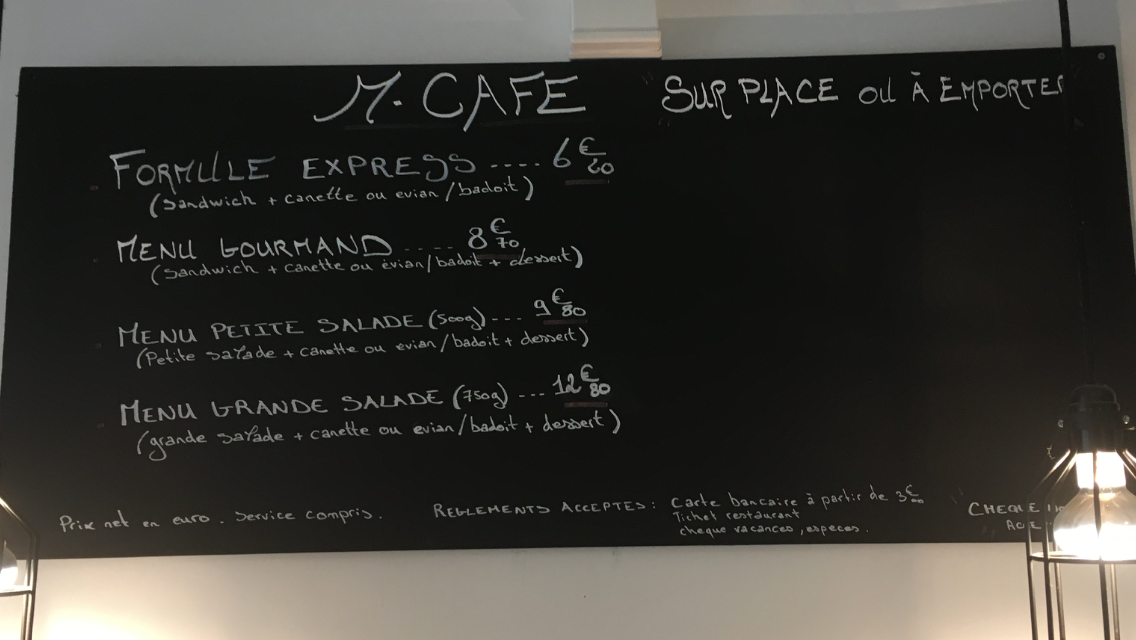 M. CAFE
SUR PLACE OU À EMPORTER
FORMULE EXPRESS .... 6€20
(Sandwich + canette ou evian/badoit)
MENU GOURMAND ..... 8€70
(Sandwich + canette ou évian/badoit + dessert)
MENU PETITE SALADE (500g) --- 9€80
(Petite salade + canette ou evian/badoit + dessert)
MENU GRANDE SALADE (750g) ... 12€80
(grande salade + canette ou evian/badoit + dessert)
Prix net en euro. Service compris.
REGLEMENTS ACCEPTES : Carte bancaire à partir de 3€
Ticket restaurant
cheque vacances, especes.
CHEQUE